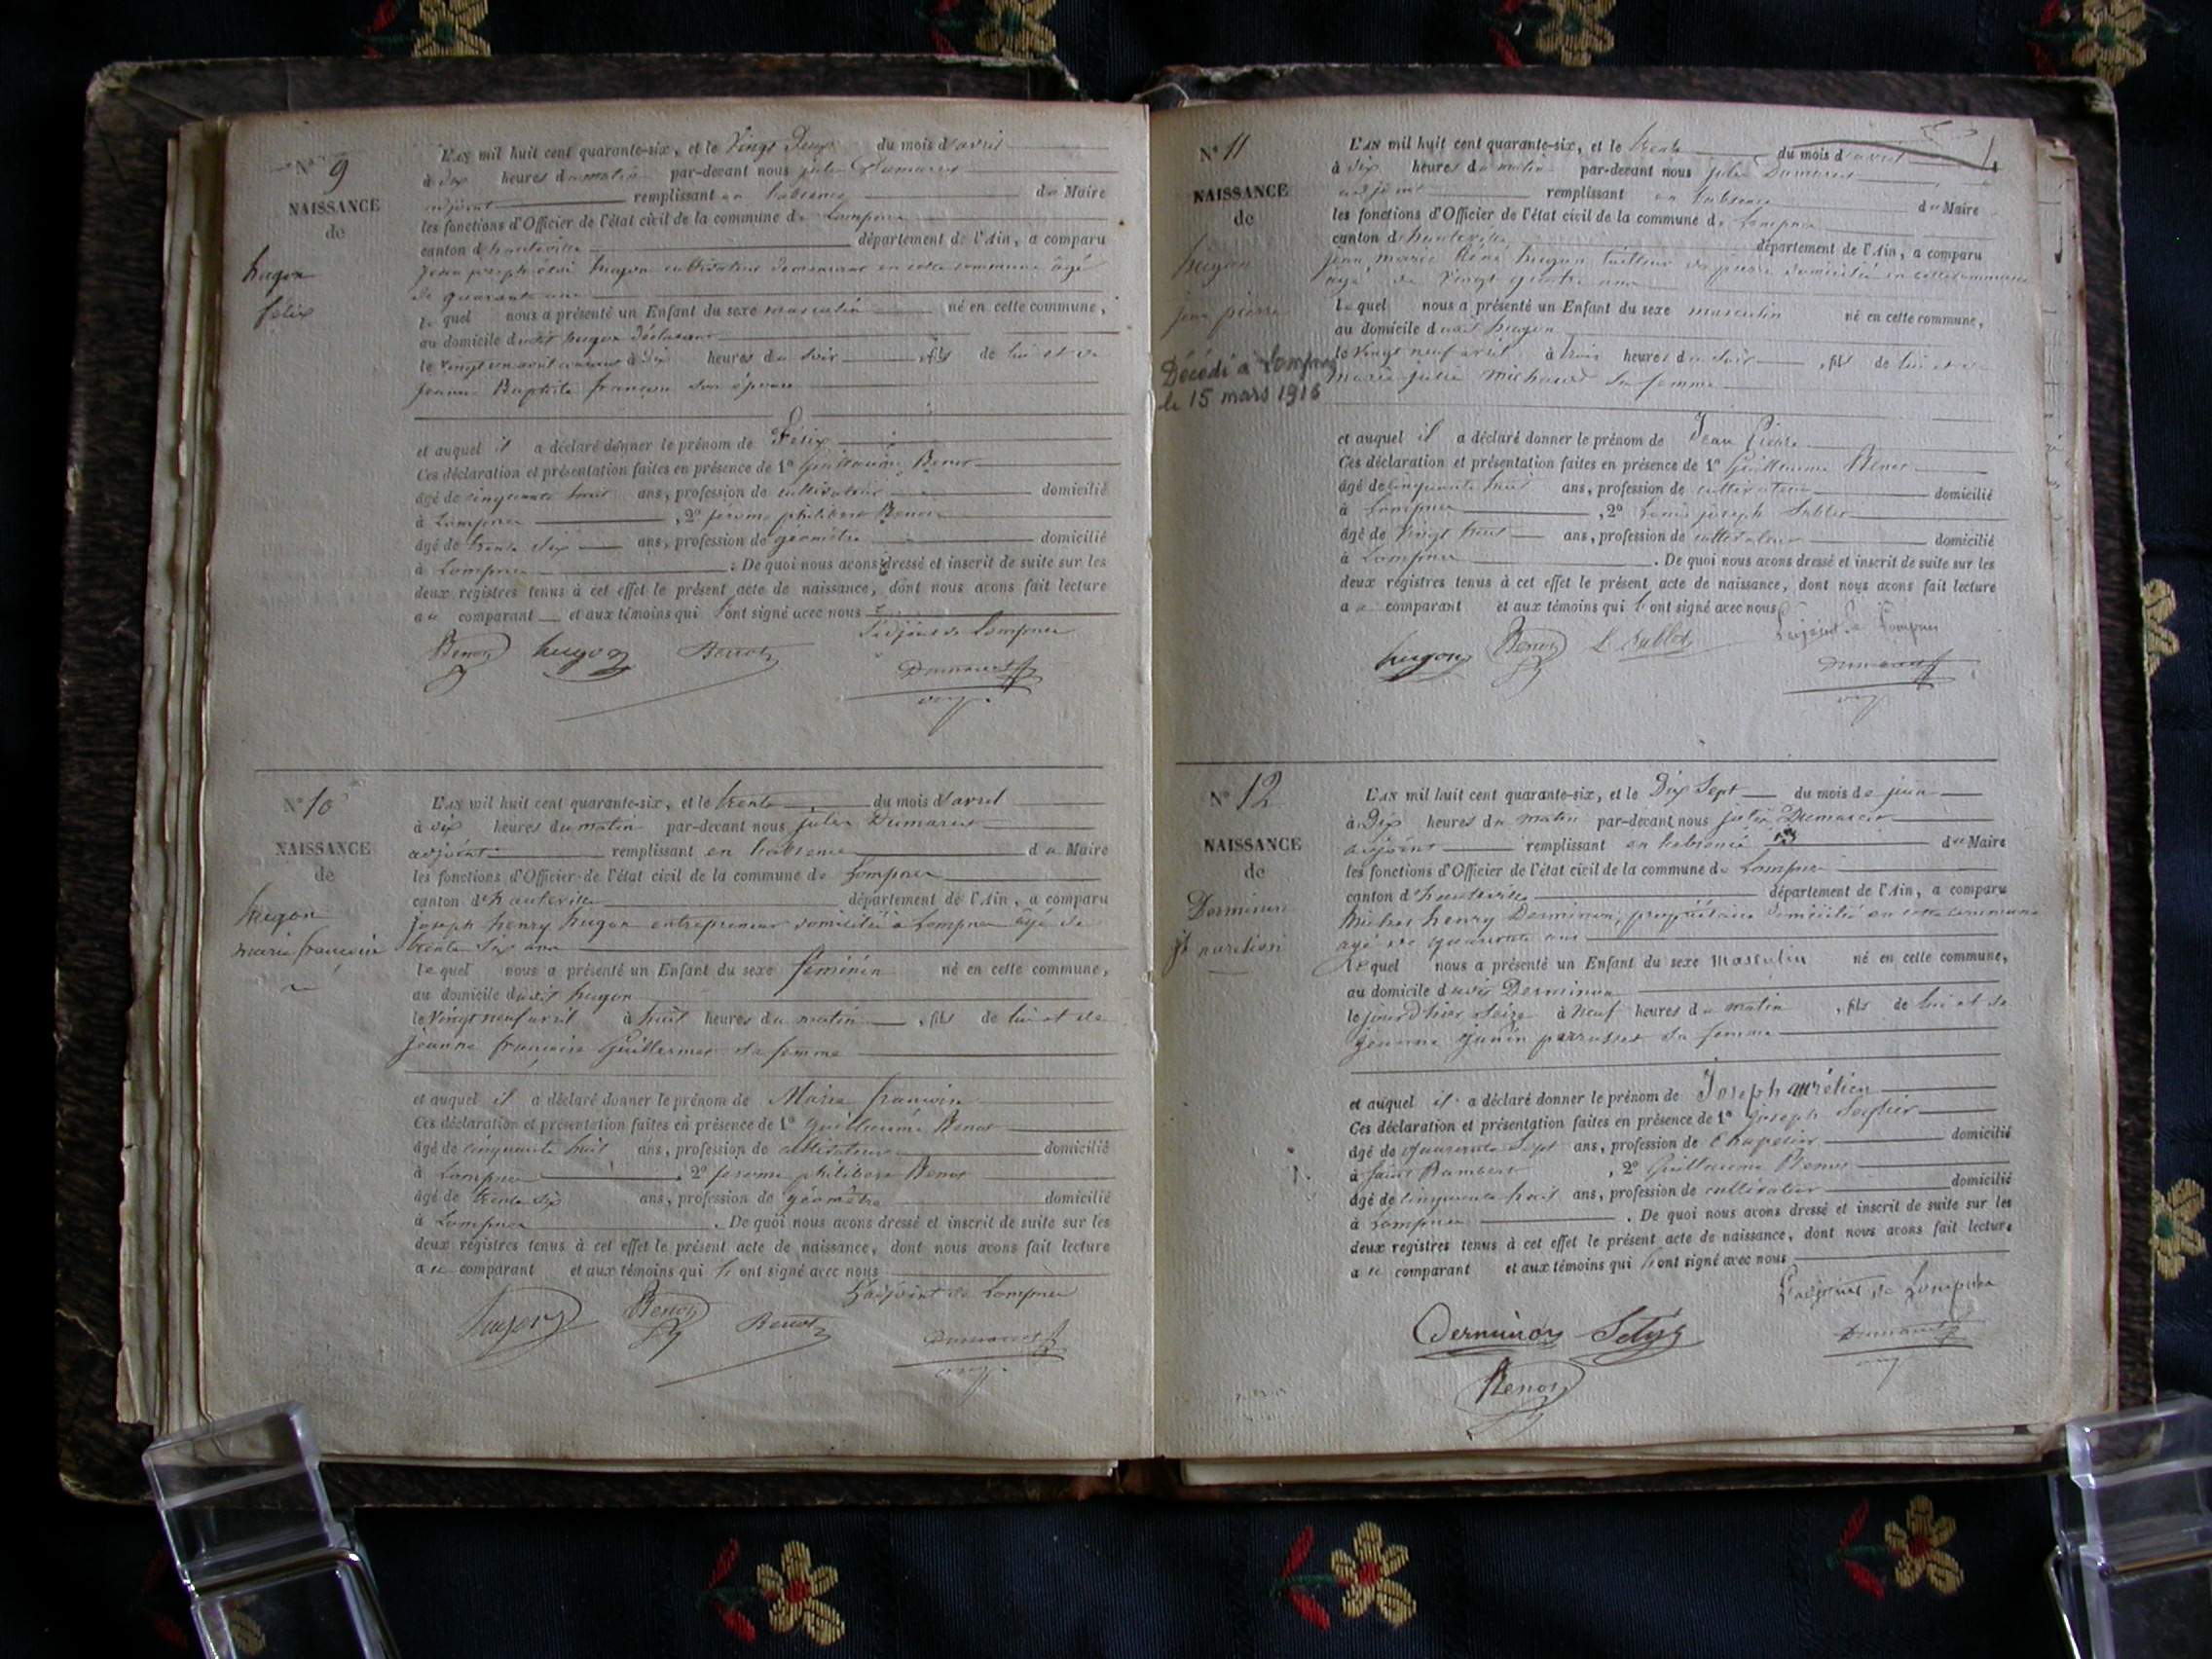 N° 9
NAISSANCE
de
hugon
félix
L'AN mil huit cent quarante-six, et le Vingt Deux du mois d'avril
à dix heures du matin par-devant nous jules Dumarest
adjoint remplissant en l'absence du Maire
les fonctions d'Officier de l'état civil de la commune de Lompnes
canton d'hauteville département de l'Ain, a comparu
jean joseph hugon cultivateur demeurant en cette commune âgé
de quarante ans
lequel nous a présenté un Enfant du sexe masculin né en cette commune,
au domicile dudit hugon déclarant
le vingt un avril courant à dix heures du soir, fils de lui et de
jeanne Baptiste françon son épouse
et auquel il a déclaré donner le prénom de Félix
Ces déclaration et présentation faites en présence de 1° Guillaume Benoi
âgé de cinquante huit ans, profession de cultivateur domicilié
à Lompnes, 2° jérome philibert Benoi
âgé de trente six ans, profession de géomètre domicilié
à Lompnes. De quoi nous avons dressé et inscrit de suite sur les
deux régistres tenus à cet effet le présent acte de naissance, dont nous avons fait lecture
au comparant et aux témoins qui l'ont signé avec nous
L'adjoint de Lompnes
Benoi hugon Benoi Dumarest
N° 10
NAISSANCE
de
hugon
marie françoise
L'AN mil huit cent quarante-six, et le trente du mois d'avril
à dix heures du matin par-devant nous jules Dumarest
adjoint remplissant en l'absence du Maire
les fonctions d'Officier de l'état civil de la commune de Lompnes
canton d'hauteville département de l'Ain, a comparu
joseph henry hugon entrepreneur domicilié à Lompnes âgé de
trente six ans
lequel nous a présenté un Enfant du sexe féminin né en cette commune,
au domicile dudit hugon
le Vingt neuf avril à huit heures du matin, fils de lui et de
jeanne françoise Guillermet sa femme
et auquel il a déclaré donner le prénom de Marie françoise
Ces déclaration et présentation faites en présence de 1° Guillaume Benoi
âgé de cinquante huit ans, profession de cultivateur domicilié
à Lompnes, 2° jerome philibert Benoi
âgé de trente six ans, profession de géomètre domicilié
à Lompnes. De quoi nous avons dressé et inscrit de suite sur les
deux régistres tenus à cet effet le présent acte de naissance, dont nous avons fait lecture
au comparant et aux témoins qui l'ont signé avec nous
L'adjoint de Lompnes
hugon Benoi Benoi Dumarest
N° 11
NAISSANCE
de
hugon
jean pierre
Décédé à Lompnes
le 15 mars 1916
L'AN mil huit cent quarante-six, et le trente du mois d'avril
à dix heures du matin par-devant nous jules Dumarest
adjoint remplissant en l'absence du Maire
les fonctions d'Officier de l'état civil de la commune de Lompnes
canton d'hauteville département de l'Ain, a comparu
jean marie hugon tailleur de pierre domicilié en cette commune
âgé de vingt quatre ans
lequel nous a présenté un Enfant du sexe masculin né en cette commune,
au domicile dudit hugon
le vingt neuf avril à trois heures du soir, fils de lui et de
marie julie michaud sa femme
et auquel il a déclaré donner le prénom de Jean Pierre
Ces déclaration et présentation faites en présence de 1° Guillaume Benoi
âgé de cinquante huit ans, profession de cultivateur domicilié
à Lompnes, 2° Louis joseph Sublet
âgé de vingt huit ans, profession de cultivateur domicilié
à Lompnes. De quoi nous avons dressé et inscrit de suite sur les
deux régistres tenus à cet effet le présent acte de naissance, dont nous avons fait lecture
au comparant et aux témoins qui l'ont signé avec nous
L'adjoint de Lompnes
hugon Benoi L Sublet Dumarest
N° 12
NAISSANCE
de
Derminon
jh aurélien
L'AN mil huit cent quarante-six, et le Dix Sept du mois de juin
à Dix heures du matin par-devant nous jules Dumarest
adjoint remplissant en l'absence du Maire
les fonctions d'Officier de l'état civil de la commune de Lompnes
canton d'hauteville département de l'Ain, a comparu
Michel henry Derminon, propriétaire domicilié en cette commune
âgé de quarante ans
lequel nous a présenté un Enfant du sexe Masculin né en cette commune,
au domicile dudit Derminon
le jour d'hier Seize à Neuf heures du matin, fils de lui et de
jeanne perrusset sa femme
et auquel il a déclaré donner le prénom de Joseph aurélien
Ces déclaration et présentation faites en présence de 1° joseph
âgé de quarante Sept ans, profession de chapelier domicilié
à Saint Rambert, 2° Guillaume Benoi
âgé de cinquante huit ans, profession de cultivateur domicilié
à Lompnes. De quoi nous avons dressé et inscrit de suite sur les
deux registres tenus à cet effet le présent acte de naissance, dont nous avons fait lecture
au comparant et aux témoins qui l'ont signé avec nous
L'adjoint de Lompnes
Derminon Dumarest
Benoi